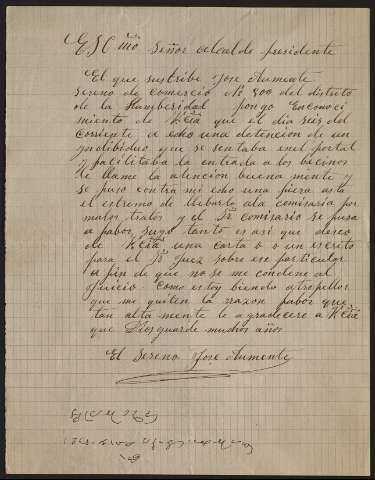 Esmo Señor alcalde presidente
El que suscribe Jose Aumente
sereno de comercio No 900 del distrito
de la Hunibersidad pongo Enconoci
miento de Vcia que el dia seis del
corriente a echo una detencion de un
yndibiduo que se sentaba en el portal
y facilitaba la entrada a los becinos
le llame la atencion buena mente y
se puso contra mi echo una fiera asta
el estremo de lleburle ala comisaria por
malos tratos y el Sr comisario se puso
a fabor suyo tanto es asi que deseo
de Vcia una carta o o un escrito
para el Sr Juez sobre ese particular
a fin de que no se me condene al
Juicio. Como estoy biendo atropellos
que me quiten la razon fabor que
tan alta mente le agradecere a Vcia
que Dios guarde muchos años
El Sereno Jose Aumente